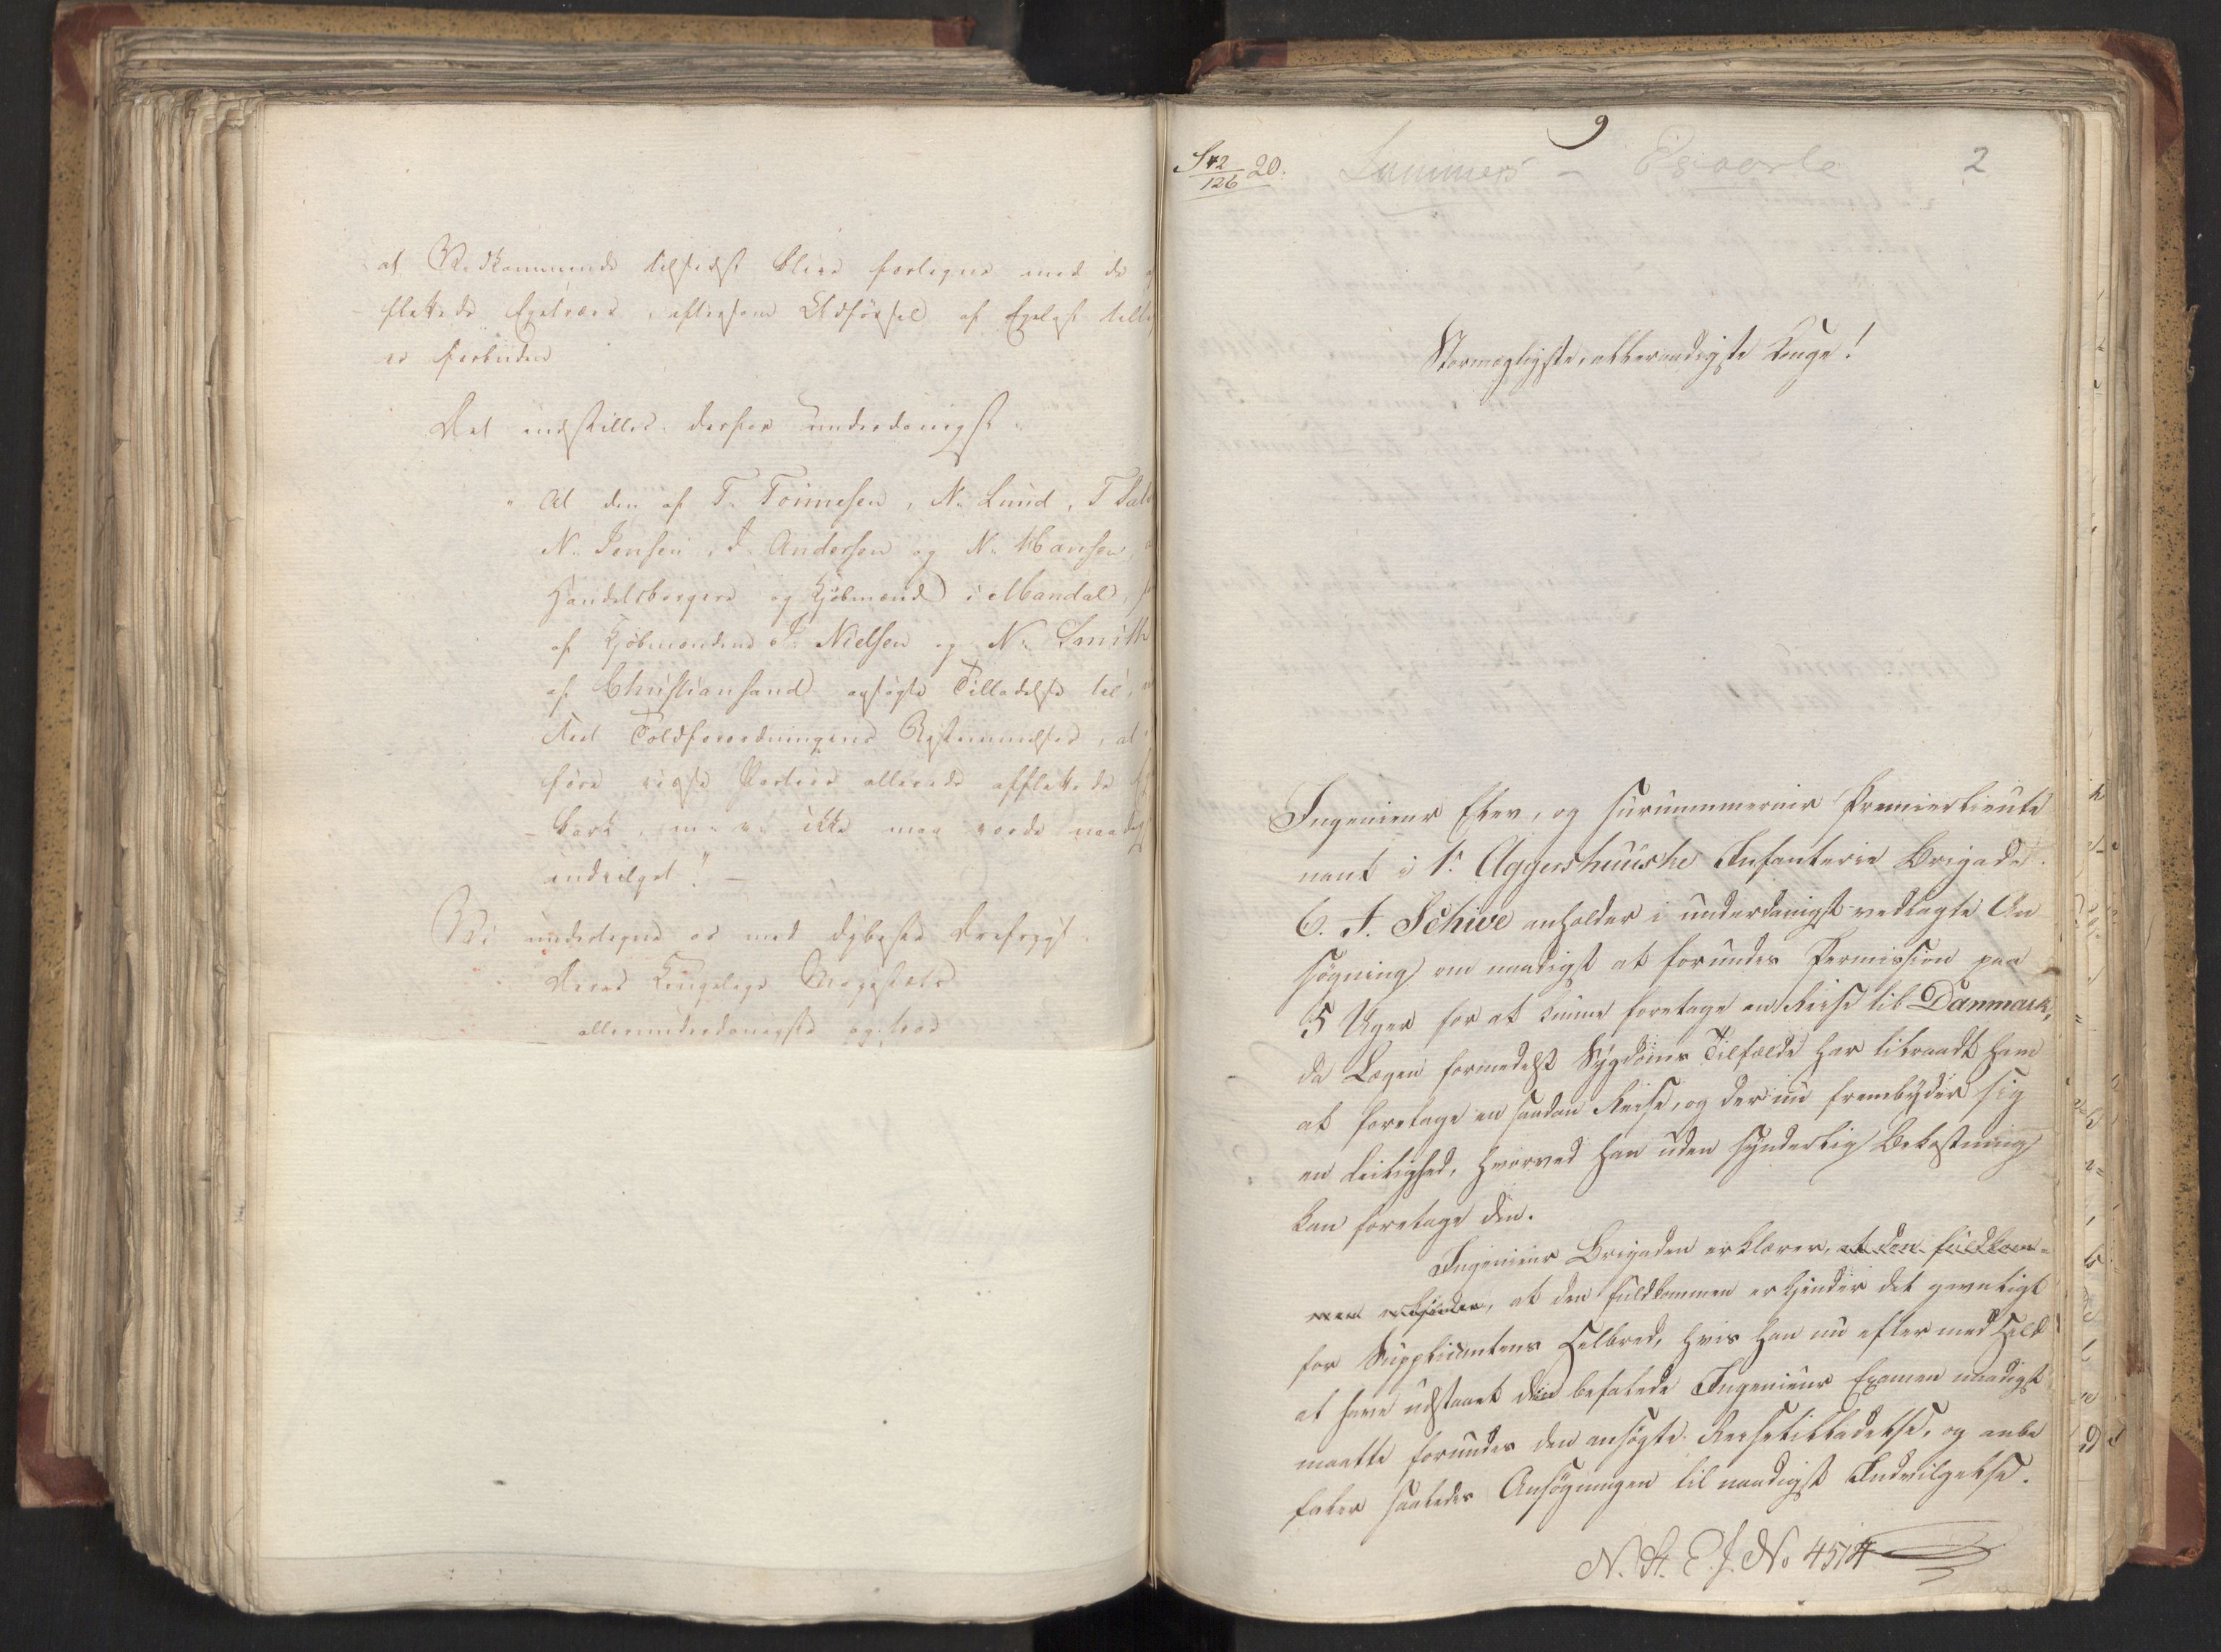 at Vedkommende tilsidst blive forlegne med de
flakkede Egetræer, eftersom Udførsel af Egelast
er forbuden
Det indstilles derfor underdanigst:
"At den af T. Tönnesen, N. Lund, T.
N. Jensen, J. Andersen og N. Hansen,
Handelsborgere og Kjöbmænd i Mandal,
af Kjöbmændene J. Nielsen og N. Smith
af Christiansand ansögte Tilladelse til,
Told forordningens Bestemmelser, at
före visse Partier allerede afflakkede
bark, ikke maa vorde naadigst
indvilget." —
Vi undertegne os med dybeste Ærefrygt.
Deres Kongelige Majestæts
allerunderdanigste og troe
9
S 42/126 20.
2
Stormægtigste, allernaadigste Konge!
Ingenieur Elev, og surnummerair Premierlieute
nant i 1. Aggershuuiske Infanterie Brigade
C. J. Schive anholder i underdanigst vedlagte An
søgning om naadigst at forundes Permission paa
5 Uger for at kunne foretage en Reise til Danmark,
da Lægen formedelst Sygdoms Tilfælde har tilraadt ham
at foretage en saadan Reise, og der nu frembyder sig
en Leilighed, hvorved han uden synderlig Bekostning
kan foretage den.
Ingenieur Brigaden erklærer, at den fuldkom-
men erkjender, at den fuldkommen erkjender det gavnligt
for Supplicantens Helbred, hvis han nu efter med Held
at have udstaaet den befalede Ingenieur Examen naadigst
maatte forundes den ansøgte Reisetilladelse, og anbe
faler saaledes Ansøgningen til naadigst Indvilgelse.
N. St. E. J. No 4514